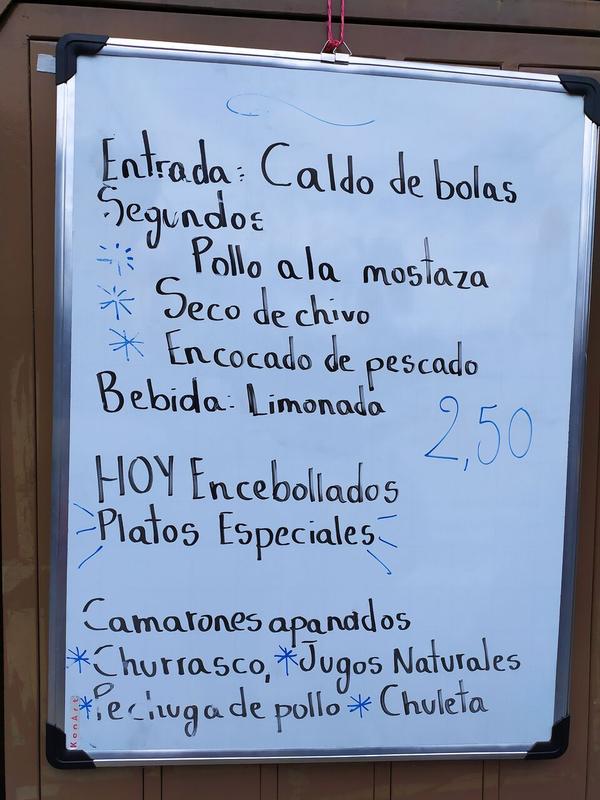 Entrada: Caldo de bolas
Segundos
Pollo a la mostaza
* Seco de chivo
* Encocado de pescado
Bebida: Limonada
2,50
HOY Encebollados
Platos Especiales
Camarones apanados
* Churrasco, * Jugos Naturales
* Pechuga de pollo * Chuleta
KenArt